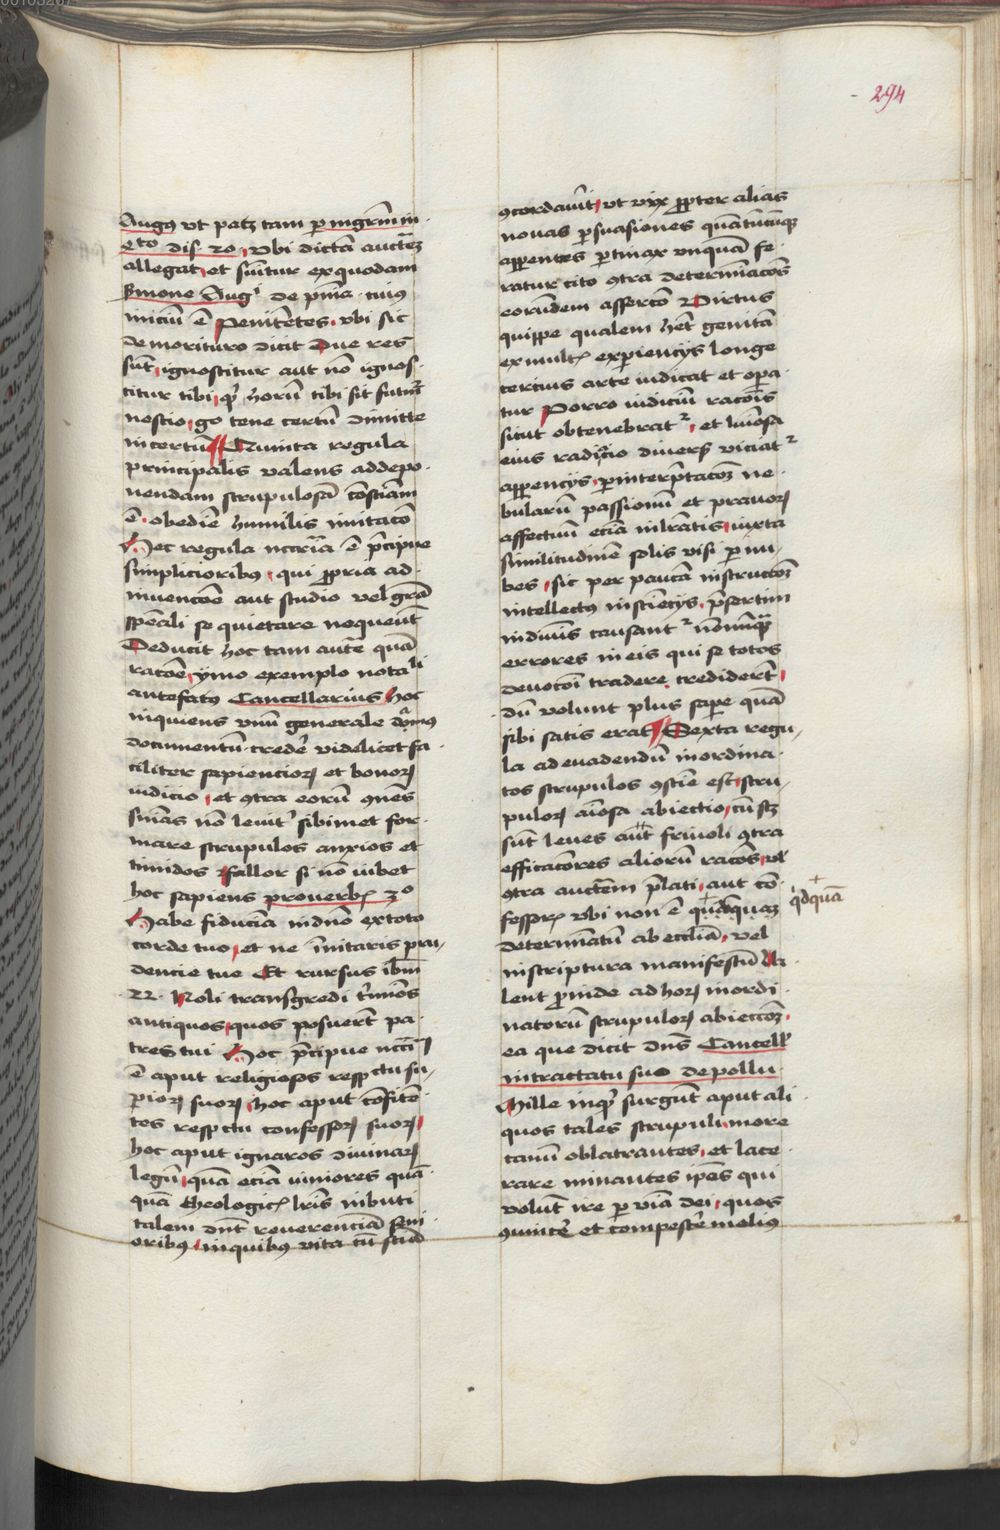 294
Augꝰ vt patꝫ tam p mgrm̄ in
4to dis. 20, vbi dictā auctēꝫ
allegat, et sum̄tur ex quodam
sermone Augi de pn̄ia cuiꝰ
iniciū ē Penitētes, vbi sic
de morituro dicit Due res
sūt, ignoscitur aut nō ignos-
citur tibi, horū tibi sit futuꝝ
nescio, go tene certū dimitte
incertū Quinta regula
principalis valens ad depo-
nendam scrupulosā cōsciam
ē obediē humilis imitacō
Hec regula nccria ē p̄cipue
simplicioribꝰ, qui ꝓpria ad-
invencōe aut studio vel grā
spēcali se quietare nequeūt
Deducit hoc tam autē quā
racōe, ymo exemplo notali
antefatꝰ Cancellarius hoc
inquiens vnū generale
documentū credē videlicet fa-
ciliter sapiencioꝝ et bonoꝝ
iudicio, et ꝯtra eorū ōnes
sn̄ias nō leuitᷣ sibimet for-
mare scrupulos anxios et
timidos, fallor si nō iubet
hoc sapiens prouerbꝝ 3o
Habe fiduciā in dn̄o ex toto
corde tuo, et ne īnitaris pru-
dencie tue Et rursus ibm̄
22. Noli transgredi t̄mios
antiquos, quos posuerūt pa-
tres tui Hoc p̄cipue
ē aput religiosos respctu su-
perioꝝ suoꝝ, hoc aput cōfitē-
tes respctu confessoꝝ suoꝝ,
hoc aput ignaros diuinaꝝ
legū, quā eciā iuniores quā-
quā theologicꝭ lr̄is inbuti
talem dn̄t reuerenciā seni-
oribꝰ, in quibꝰ vita cū sciā
ꝯcordauit, vt vix ꝓpter alias
nouas psuasiones quātūcūqꝫ
apparentes ptinax vnquā fe-
ratur cito ꝯtra determiacōꝫ
eorūdem assercō Virtus
quippe qualem hēt genitā
ex multꝭ expienciis longe
cercius arte iudicat et opa-
tur Porro iudiciū racōis
sicut obtenebratᷣ, et lumīosa
eius radicio diuersꝭ viciatᷣ
apparenciis, p interp̄tacōꝫ ne-
bularū passionū et prauoꝝ
affectuū eciā nilratis, iuxta
similitudinē solis visi p nu-
bes, sic per paucā instructōꝫ
intellectꝰ in scienciis, p̄sertim
in diuīis causantᷣ nōnūqā
errores in eis qui se totos
deuocōi tradere crediderūt,
dū volunt plus sape quā
sibi satis erat Sexta regu-
la ad euadendū inordina-
tos scrupulos ꝯscīe est, scru-
puloꝝ aīosa abiectio, cū scꝫ
sūt leues aut friuoli ꝯtra
efficacōres aliorū racōes, vel
ꝯtra auctēm p̄lati, aut cō-
fessorꝭ vbi non ē quidquaꝫ qdquā
determinatū ab ecclīa, vel
in scriptura manifestū Va-
lent proinde ad horꝝ inordi-
natorū scrupuloꝝ abieccōꝫ
ea que dicit dn̄s Cancell
in tractatu suo de pollu
Mille inqᷣ surgūt aput ali-
quos tales scrupuli, more
canū oblatrantes, et lace-
rare minantes ip̄os qui
volūt ire p viā dei, quos
ꝯuincē et compescē melius